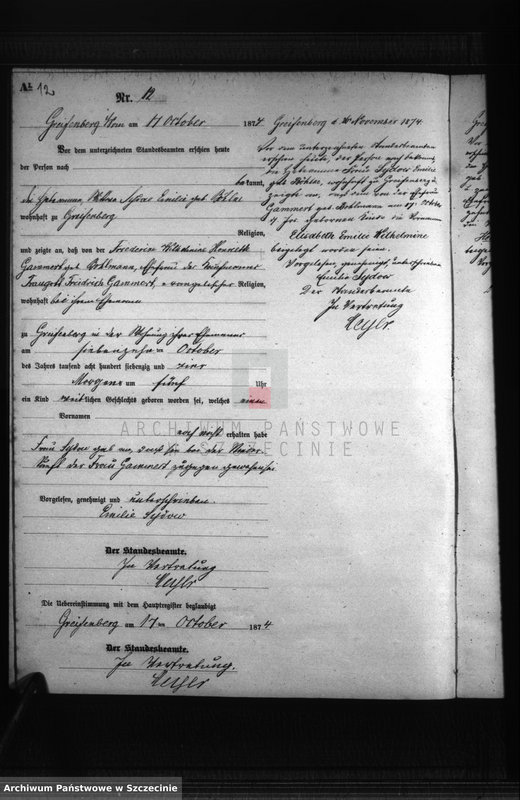 № 12
Nr. 12
Greifenberg i/Pom am 17 October 1874
Vor dem unterzeichneten Standesbeamten erschien heute
der Person nach
bekannt,
die Hebamme, Wittwe Sydow Emilie geb Böhlke
wohnhaft zu Greifenberg
Religion,
und zeigte an, daß von der Friederike Wilhelmine Henriette
Gammert geb Bohlmann, Ehefrau des
Traugott Friedrich Gammert, evangelischer Religion,
wohnhaft bei ihrem Ehemann
zu Greifenberg in der Wohnung ihres Ehemannes
am siebenzehn ten October
des Jahres tausend acht hundert siebenzig und vier
Morgens um fünf Uhr
ein Kind weiblichen Geschlechts geboren worden sei, welches einen
Vornamen
noch nicht erhalten habe
Frau Sydow gab an, daß sie bei der Nieder-
kunft der Frau Gammert zugegen gewesen sei
Vorgelesen, genehmigt und unterschrieben.
Emilie Sydow
Der Standesbeamte.
In Vertretung
Die Uebereinstimmung mit dem Hauptregister beglaubigt
Greifenberg am 17 ten October 1874
Der Standesbeamte.
In Vertretung.
Greifenberg d. 26 November 1874.
Vor dem unterzeichneten Standesbeamten
erschien heute der Person nach bekannt
die Hebamme Frau Sydow Emilie
geb Böhlke, wohnhaft zu Greifenberg u
zeigte an, daß dem von der Ehefrau
Gammert geb. Bohlmann am 17. Octbr
d. J. geborenen Kinde die Vornamen
Elisabeth Emilie Wilhelmine
beigelegt worden seien.
Vorgelesen, genehmigt, unterschrieben
Emilie Sydow
Der Standesbeamte
In Vertretung
ARCHIWUM PAŃSTWOWE
W SZCZECINIE
Archiwum Państwowe w Szczecinie